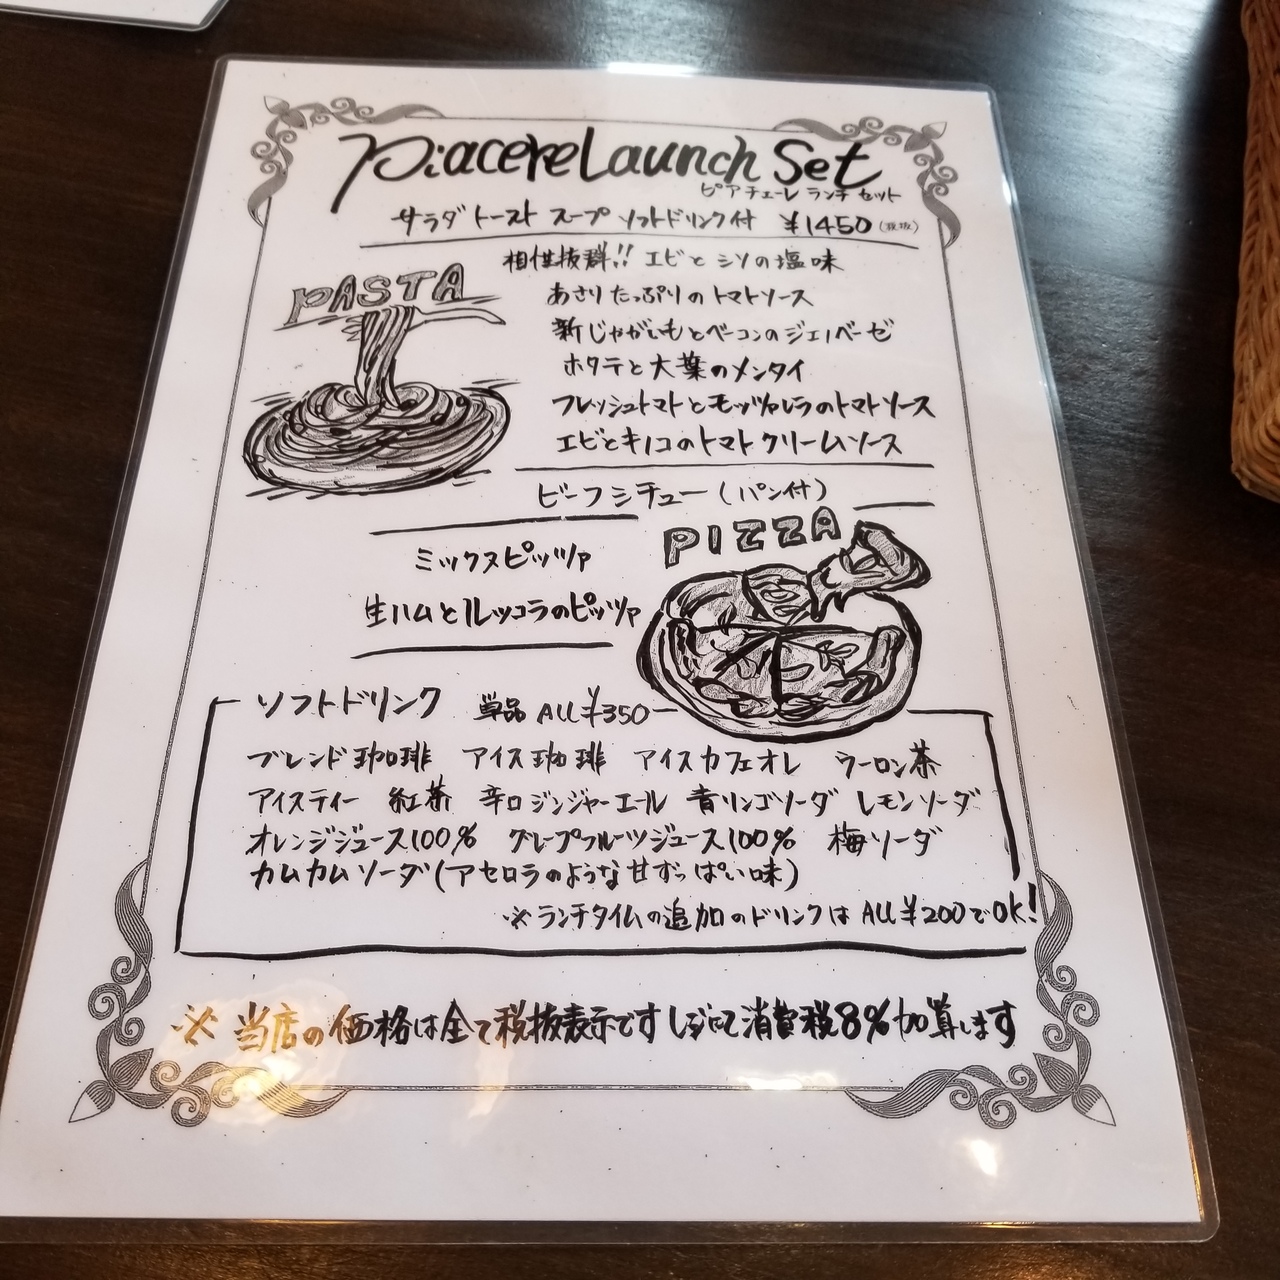 Piacere Launch Set
ピアチェーレ ランチ セット
サラダ トースト スープ ソフトドリンク付 ¥1450 (税抜)
相性抜群!! エビとシソの塩味
PASTA
あさりたっぷりのトマトソース
新じゃがいもとベーコンのジェノベーゼ
ホタテと大葉のメンタイ
フレッシュトマトとモッツァレラのトマトソース
エビとキノコのトマトクリームソース
ビーフシチュー(パン付)
PIZZA
ミックスピッツァ
生ハムとルッコラのピッツァ
ソフトドリンク 単品 ALL ¥350
ブレンド珈琲 アイス珈琲 アイスカフェオレ ウーロン茶
アイスティー 紅茶 辛口ジンジャーエール 青リンゴソーダ レモンソーダ
オレンジジュース100% グレープフルーツジュース100% 梅ソーダ
カムカムソーダ(アセロラのような甘ずっぱい味)
※ランチタイムの追加のドリンクは ALL ¥200でOK!
※当店の価格は全て税抜表示です レジにて消費税8%加算します